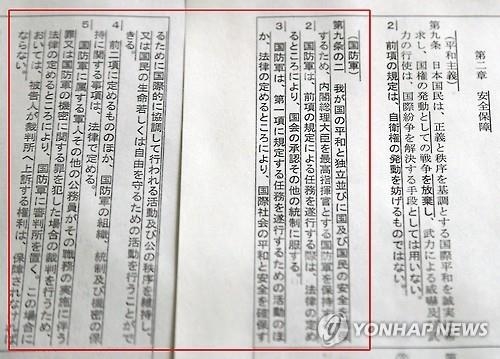 第二章 安全保障
（平和主義）
第九条 日本国民は、正義と秩序を基調とする国際平和を誠実に
求し、国権の発動としての戦争を放棄し、武力による威嚇及び武
力の行使は、国際紛争を解決する手段としては用いない。
2 前項の規定は、自衛権の発動を妨げるものではない。
（国防軍）
第九条の二 我が国の平和と独立並びに国及び国民の安全を確保
するため、内閣総理大臣を最高指揮官とする国防軍を保持する。
2 国防軍は、前項の規定による任務を遂行する際は、法律の定め
るところにより、国会の承認その他の統制に服する。
3 国防軍は、第一項に規定する任務を遂行するための活動のほ
か、法律の定めるところにより、国際社会の平和と安全を確保す
るために国際的に協調して行われる活動及び公の秩序を維持し、
又は国民の生命若しくは自由を守るための活動を行うことがで
きる。
4 前二項に定めるもののほか、国防軍の組織、統制及び機密の保
持に関する事項は、法律で定める。
5 国防軍に属する軍人その他の公務員がその職務の実施に伴う
罪又は国防軍の機密に関する罪を犯した場合の裁判を行うため、
法律の定めるところにより、国防軍に審判所を置く。この場合に
おいては、被告人が裁判所へ上訴する権利は、保障されなければ
ならない。
YONHAP NEWS